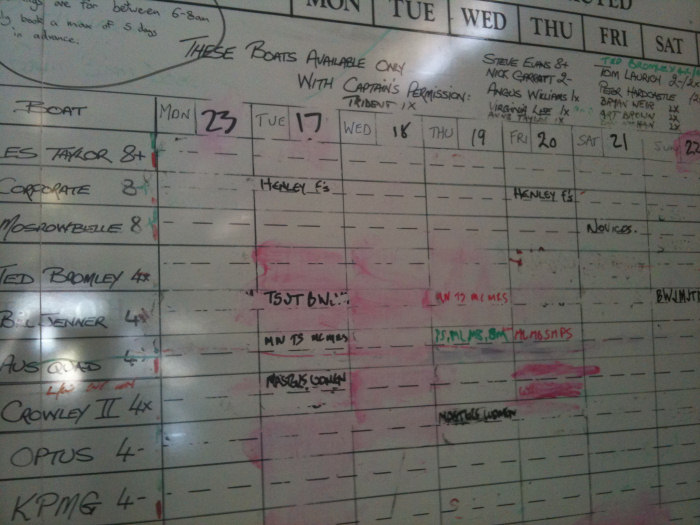 are for between 6-8am
book a max of 5 days
in advance.
MON TUE WED THU FRI SAT
THESE BOATS AVAILABLE ONLY
WITH CAPTAIN'S PERMISSION:
TRIDENT 1X
STEVE EVANS 8+
NICK GARRATT 2-
ANGUS WILLIAMS 1x
VIRGINIA LEE 1x
ANNE TAYLOR 1x
TED BROMLEY
TOM LAURICH 2-/2x
PETER HARDCASTLE
BRYAN WEIR 2x
ART BROWN 2x
BOAT MON 23 TUE 17 WED 18 THU 19 FRI 20 SAT 21 SUN 22
ES TAYLOR 8+
CORPORATE 8+ HENLEY F's HENLEY F's
MOSROWBELLE 8 NOVICES.
TED BROMLEY 4x
BILL JENNER 4x TSJT BN MN TS ML MRS BWJMJT
AUS QUAD 4- MN TS ML MRS TS, ML, MB, BM MLMBSMPS
CROWLEY II 4x MASTERS WOMEN MASTERS WOMEN
OPTUS 4-
KPMG 4-